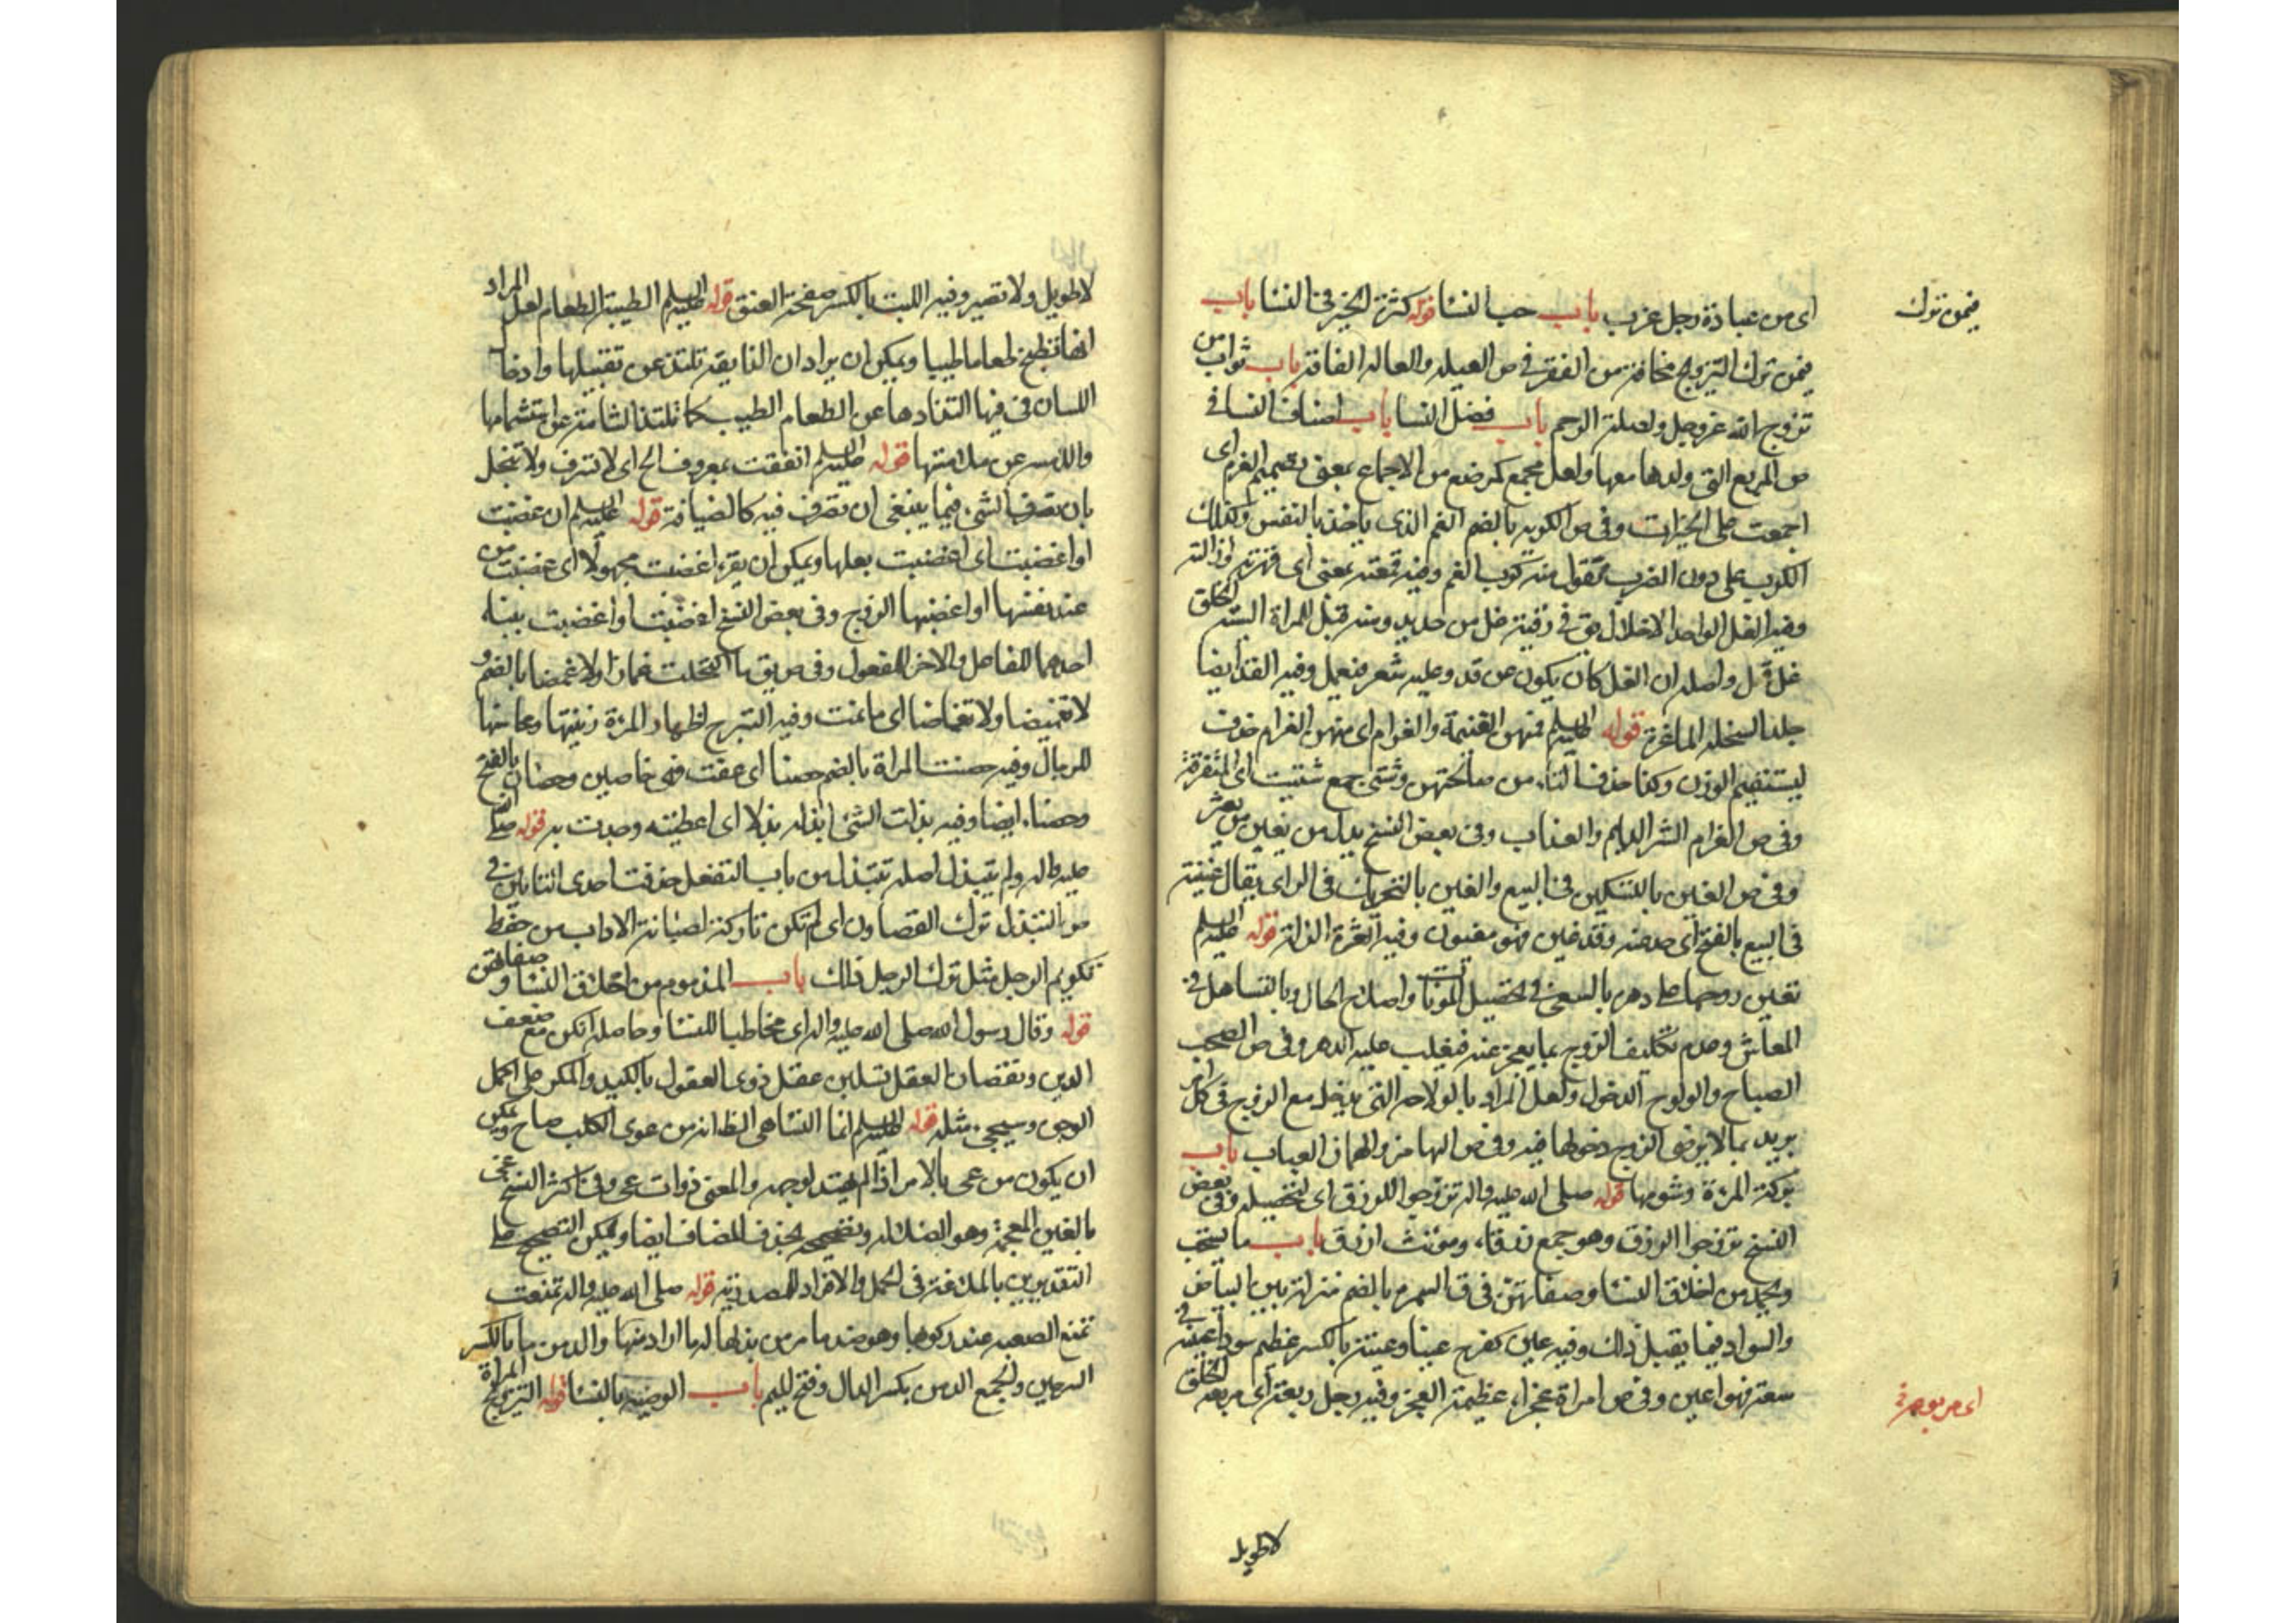 اى من عبادة رجل عزب باب حب النسا قوله كثرة الخير فى النسا باب
فيمن ترك
فيمن ترك التزويج مخافة من الفقر فى ص العيله والعاله الفاقة باب ثواب من
تزوج الله عزوجل ولصلة الرحم باب فضل النسا باب اصناف النسا فى
ص المربع التى ولدها معها ولعل مجمع كمرضع من الاجماع بمعنى تصميم الغرم اى
اجمعت على الخيرات وفى ص الكربه بالضم الغم الذى ياخذ بالنفس وكذلك
الكرب على دون الضرب تقول منه كربه الغم وفيه قمعته بمعنى اى قهرته
وفيه الغل الواحد الاغلال يق فى رقبته غل من حديد ومنه قيل للمراة السيئة الخلق
غل قمل واصله ان الغل كان يكون من قد وعليه شعر فيقمل وفيه القد ايضا
جلد السخله الماعزة قوله عليه السلم فمنهن الغنيمة والغرام اى منهن الغرام حذف
ليستقيم الوزن وكذا حذف التاء من صالحتهن وشتى جمع شتيت اى المتفرقة
وفى ص الغرام الشر الدايم والعذاب وفى بعض النسخ بدل من يغبن من يعثر
وفى ص الغبن بالتسكين فى البيع والغبن بالتحريك فى الراى يقال غبنته
فى البيع بالفتح اى خدعته وقد غبن فهو مغبون وفيه العثرة الزلة قوله عليه السلم
تعين زوجها على دهره بالسعى فى تحصيل المونات واصلاح الحال وبالتساهل فى
المعاش وعدم تكليف الزوج بما يعجز عنه فيغلب عليه الدهر وفى ص الصخب
الصياح والولوج الدخول ولعل المراد بالولاجه التى تدخل مع الزوج فى كل امر
يريد بما لا يرضى الزوج دخولها فيه وفى ص الهامز والهماز العياب باب
بركة المرءة وشومها قوله صلى الله عليه واله تزوجوا للرزق اى لتحصيله وفى بعض
النسخ تزوجوا الزرق وهو جمع زرقاء ومونث ازرق باب ما يستحب
ويحمد من اخلاق النسا وصفاتهن فى ق السمره بالضم منزلة بين البياض
والسواد فيما يقبل ذلك وفيه عين كفرح عينا وعينة بالكسر عظم سواد عينه فى
سعة فهو اعين وفى ص امراة عجزاء عظيمة العجز وفيه رجل ربعة اى مربوع الخلق
لا طويل
لا طويل ولا قصير وفيه الليت بالكسر صفحة العنق قوله عليه السلم الطيبة الطعام لعل المراد
انها تطبخ طعاما طيبا ويمكن ان يراد ان الذايقة تلتذ عن تقبيلها وادخال
اللسان فى فيها التذاذها عن الطعام الطيب كما تلتذ الشامة عن استشمامها
واللامسه عن ملامستها قوله عليه السلم انفقت بمعروف الخ اى لا تسرف ولا تبخل
بان تصرف الشى فيما ينبغى ان تصرف فيه كالضيافة قوله عليه السلم ان غضبت
او اغضبت اى اغضبت بعلها ويمكن ان يقرء اغضبت مجهولا اى غضبت من
عند نفسها او اغضبها الزوج وفى بعض النسخ اغضبت او اغضبت ببناء
احدهما للفاعل والاخر للمفعول وفى ص يق ما اكتحلت غماضا ولا غمضا بالضم و
لا تغميضا ولا تغماضا اى ما نمت وفيه التبرج اظهار المرءة زينتها ومحاسنها
للرجال وفيه حصنت المراة بالضم حصنا اى عفت فهى حاصن وحصان بالفتح
وحصناء ايضا وفيه بذلت الشى ابذله بذلا اى اعطيته وجدت به قوله صلى الله
عليه واله ولم تتبذل اصله تتبذل من باب التفعل حذفت احدى التائين فى
ص التبذل ترك التصاون اى لم تكن تاركة لصيانة الاداب من حفظ
تكريم الرجل مثل ترك الرجل ذلك باب المذموم من اخلاق النسا وصفاتهن
قوله وقال رسول الله صلى الله عليه واله اى مخاطبا للنسا وحاصله انكن مع ضعف
الدين ونقصان العقل تسلبن عقل ذوى العقول بالكيد والمكر على اكمل
الوجوه وسيجى مثله قوله عليه السلم انما النسا هى الظ انه من عوى الكلب صاح ويمكن
ان يكون من عى بالامر اذا لم يهتد لوجهه والمعنى ذوات عى وفى اكثر النسخ غى
بالغين المعجمة وهو الضلاله وتصحيحه بحذف المضاف ايضا ويمكن التصحيح على
التقديرين بالمبالغة فى الحمل والافراد للمصدرية قوله صلى الله عليه واله تمنعت
تمنع الصعبه عند ركوبها وهو ضد ما مر من بذلها له ما اراد منها والدمن ما بالكسر
السرجين والجمع الدمن بكسر الدال وفتح الميم باب الوصيه بالنسا قوله التزويج المراة